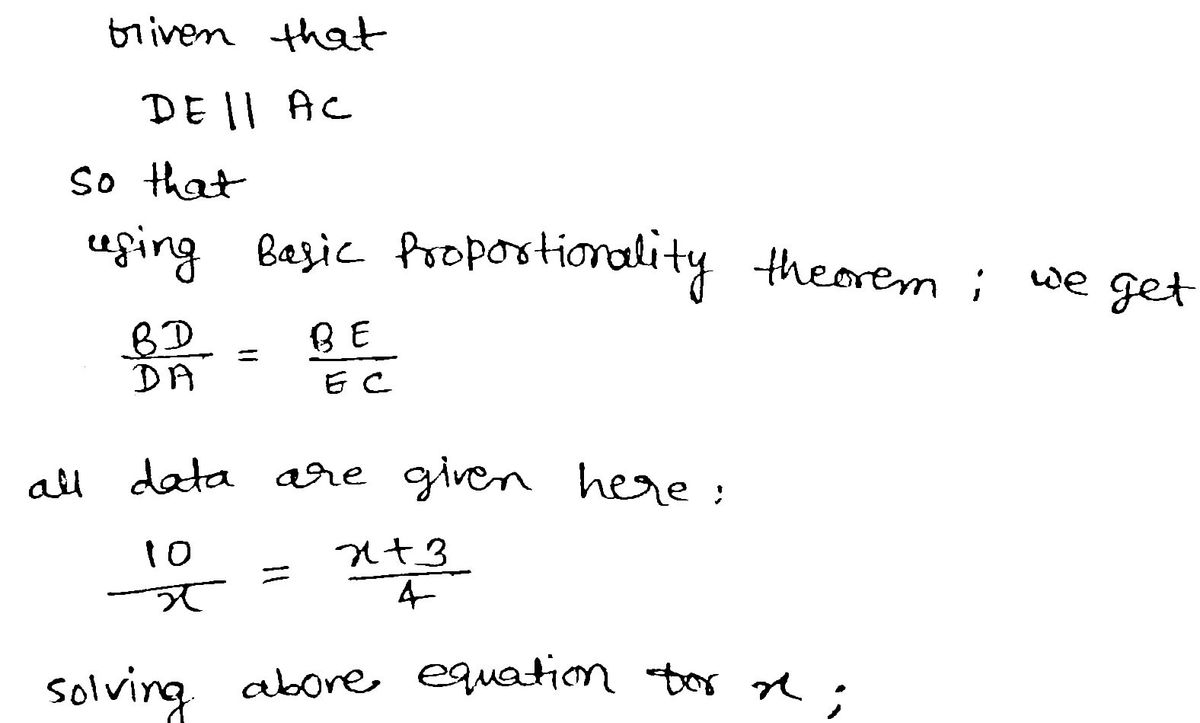 Given that
DE || AC
So that
using Basic Proportionality theorem ; we get
BD/DA = BE/EC
all data are given here ;
10/x = x+3/4
Solving above equation for x ;